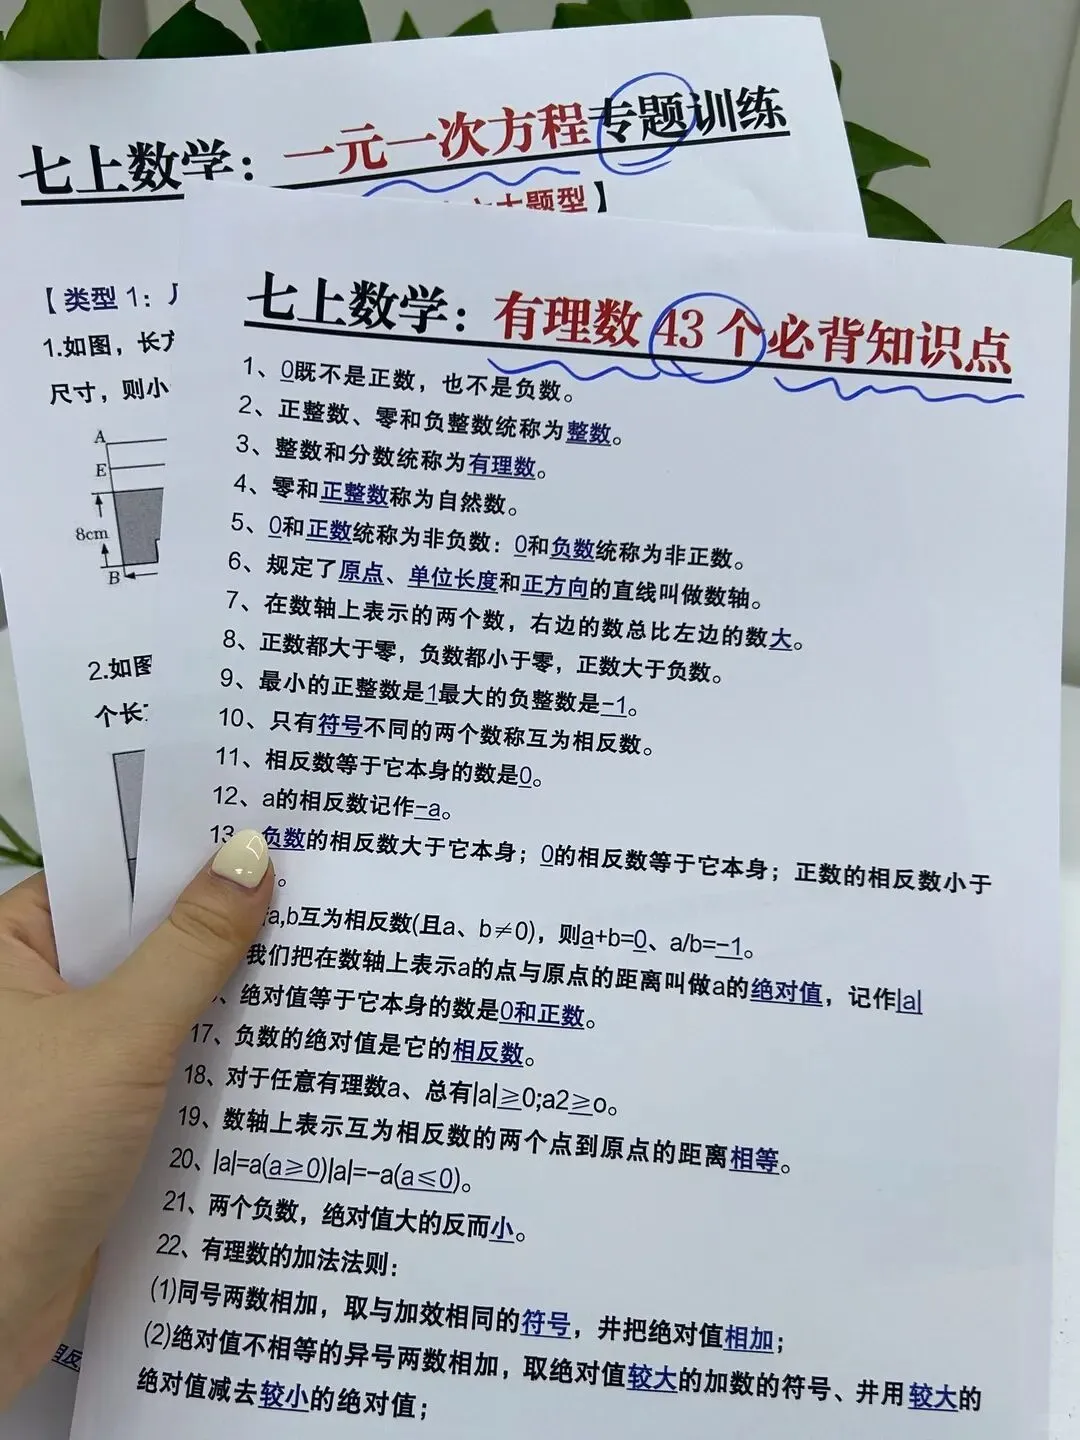 七上数学：一元一次方程专题训练
大题型】
【类型1：
1.如图，长方
尺寸，则小
A
E
8cm
B
2.如图
个长
七上数学：有理数43个必背知识点
1、0既不是正数，也不是负数。
2、正整数、零和负整数统称为整数。
3、整数和分数统称为有理数。
4、零和正整数称为自然数。
5、0和正数统称为非负数：0和负数统称为非正数。
6、规定了原点、单位长度和正方向的直线叫做数轴。
7、在数轴上表示的两个数，右边的数总比左边的数大。
8、正数都大于零，负数都小于零，正数大于负数。
9、最小的正整数是1最大的负整数是-1。
10、只有符号不同的两个数称互为相反数。
11、相反数等于它本身的数是0。
12、a的相反数记作-a。
13、负数的相反数大于它本身；0的相反数等于它本身；正数的相反数小于
。
a,b互为相反数(且a、b≠0)，则a+b=0、a/b=-1。
我们把在数轴上表示a的点与原点的距离叫做a的绝对值，记作|a|
、绝对值等于它本身的数是0和正数。
17、负数的绝对值是它的相反数。
18、对于任意有理数a、总有|a|≥0;a2≥o。
19、数轴上表示互为相反数的两个点到原点的距离相等。
20、|a|=a(a≥0)|a|=-a(a≤0)。
21、两个负数，绝对值大的反而小。
22、有理数的加法法则：
(1)同号两数相加，取与加效相同的符号，井把绝对值相加；
(2)绝对值不相等的异号两数相加，取绝对值较大的加数的符号、井用较大的
绝对值减去较小的绝对值；
相反